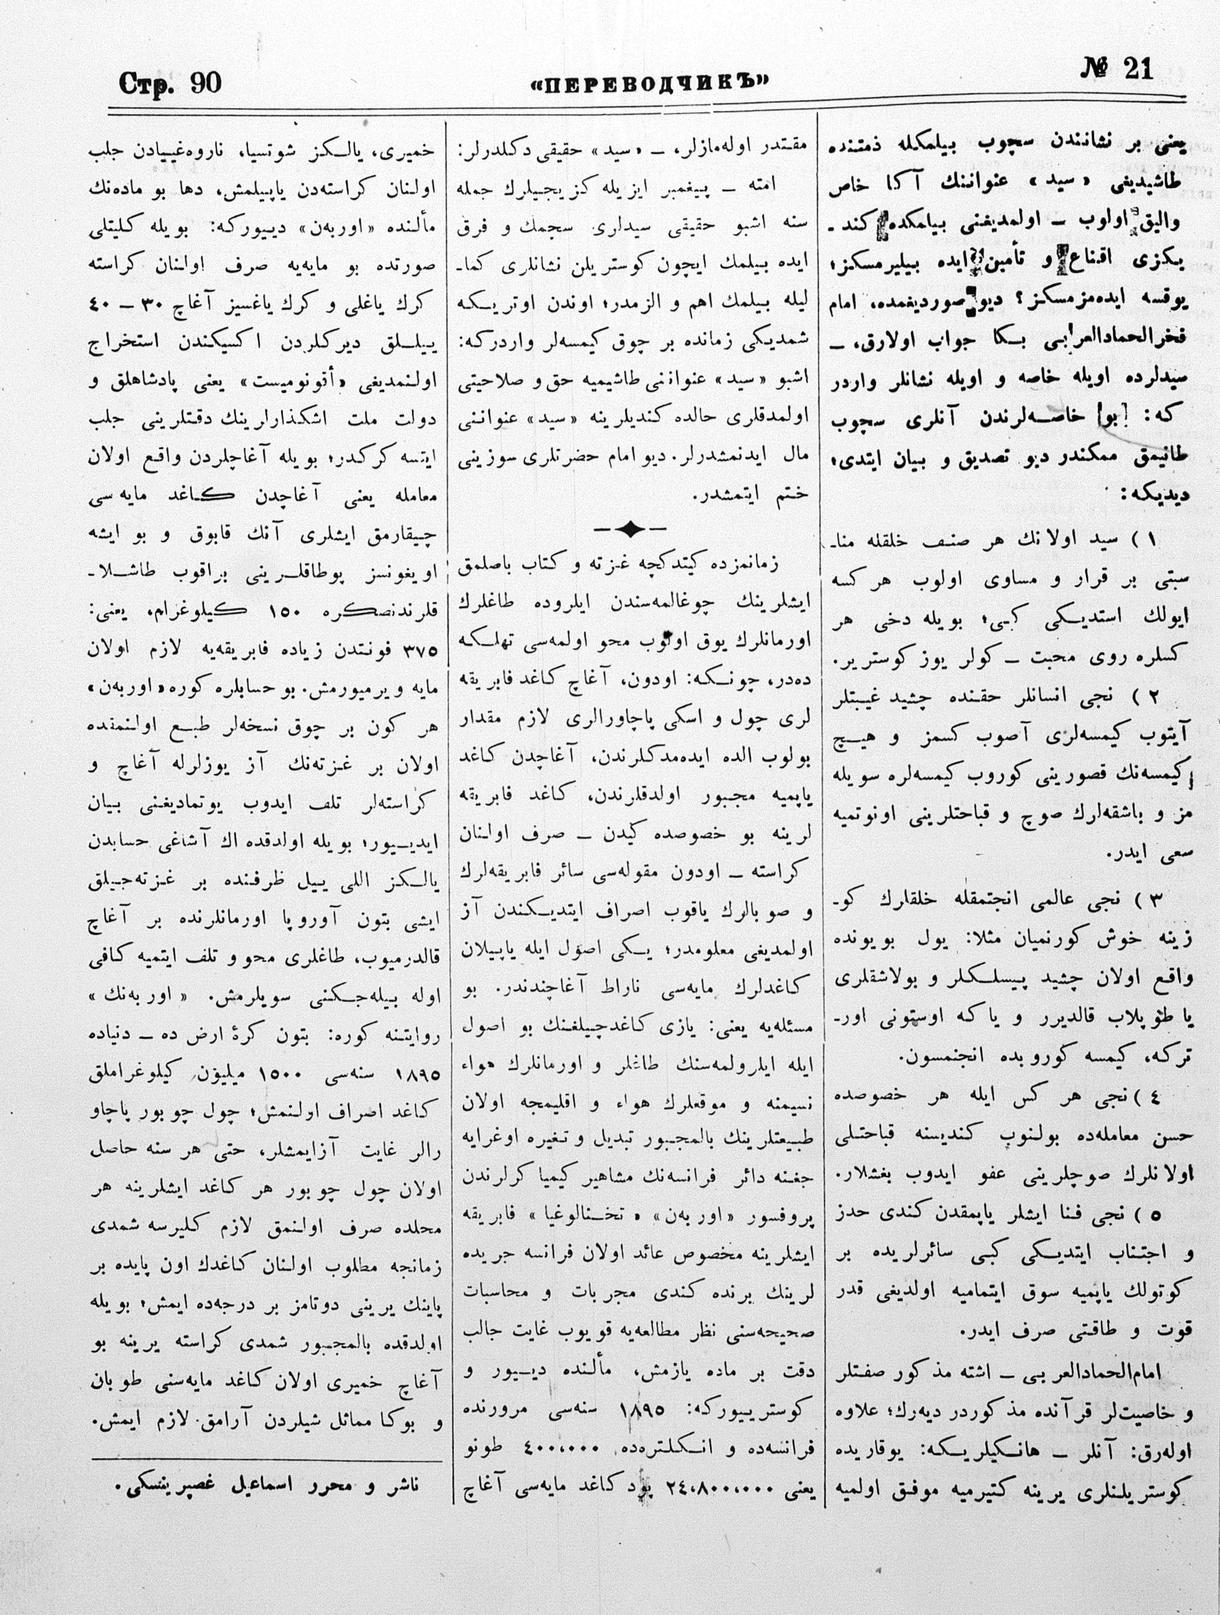 Стр. 90
«ПЕРЕВОДЧИКЪ»
№ 21
یعنی بر نشانندن سچوب بیلمکله ذمتنده
طاشیدیغی «سید» عنواننك آکا خاص
والیق اولوب ـ اولمدیغنی بیلمکده کند ـ
یکزی اقناع و تأمین ایده بیلیرمسکز؛
یوقسه ایده‌مزمسکز؟ دیو صوردیغمده، امام
فخرالحمادالعرابی بـکا جواب اولارق، ـ
سیدلرده اویله خاصه و اویله نشانلر واردر
که: [بو] خاصـه‌لرندن آنلری سچوب
طانیمق ممکندر دیو تصدیق و بیان ایتدی؛
دیدیکه:
۱) سید اولانك هر صنف خلقله مناـ
سبتی بر قرار و مساوی اولوب هر کسه
ایولك استدیـکی کبی؛ بویله دخی هر
کسلره روی محبت ـ کولر یوز کوستریر.
۲) نجی انسانلر حقنده چشید غیبتلر
آیتوب کیمسه‌لری آصوب کسمز و هیـچ
کیمسه‌نك قصورینی کوروب کیمسه‌لره سویله
مز و باشقه‌لرك صوچ و قباحتلرینی اونوتمیه
سعی ایدر.
۳) نجی عالمی انجتمقله خلقلرك کوـ
زینه خوش کورنمیان مثلا: یول بویونده
واقع اولان چشید پیسلـکلر و بولاشقلری
یا طوپلاب قالدیرر و یا که اوستونی اورـ
ترکه، کیمسه کوروبده انجنمسون.
٤) نجی هر کس ایله هر خصوصده
حسن معامله‌ده بولنوب کندیسنه قباحتلی
اولانلرك صوچلرینی عفو ایدوب بغشلار.
٥) نجی فنا ایشلر یاپمقدن کندی حذز
و اجتناب ایتدیـکی کبی سائرلریده بر
کوتولك یاپمیه سوق ایتمامیه اولدیغی قدر
قوت و طاقتی صرف ایدر.
امام‌الحمادالعربی ـ اشته مذکور صفتلر
و خاصیت‌لر قرآنده مذکوردر دیه‌رك؛ علاوه
اوله‌رق: آنلر ـ هانـکیلریـکه: یوقاریده
کوستریلنلری یرینه کتیرمیه موفق اولمیه
مقتدر اوله‌مازلر، ـ «سید» حقیقی دکلدرلر:
امته ـ پیغمبر ایزیله کزیجیلرك جمله
سنه اشبو حقیقی سیدلری سچمك و فرق
ایده بیلمك ایچون کوستریلن نشانلری کماـ
لیله بیلمك اهم و الزمدر؛ اوندن اوتریـکه
شمدیکی زمانده بر چوق کیمسه‌لر واردرکه:
اشبو «سید» عنواننی طاشیمیه حق و صلاحیتی
اولمدقلری حالده کندیلرینه «سید» عنواننی
مال ایدنمشدرلر. دیو امام حضرتلری سوزینی
ختم ایتمشدر.
زمانمزده کیتدکچه غزته و کتاب باصلمق
ایشلرینك چوغالمه‌سندن ایلروده طاغلرك
اورمانلرك یوق اولوب محو اولمه‌سی تهلـکه
ده‌در، چونـکه: اودون، آغاچ کاغد فابریقه
لری چول و اسکی پاچاورالری لازم مقدار
بولوب الده ایده‌مدکلرندن، آغاچدن کاغد
یاپمیه مجبور اولدقلرندن، کاغد فابریقه
لرینه بو خصوصده کیدن ـ صرف اولنان
کراسته ـ اودون مقوله‌سی سائر فابریقه‌لرك
و صوبالرك یاقوب اصراف ایتدیـکندن آز
اولمدیغی معلومدر؛ یـکی اصول ایله یاپیلان
کاغدلرك مایه‌سی ناراط آغاچندندر. بو
مسئله‌یه یعنی: یازی کاغدچیلغنك بو اصول
ایله ایلرولمه‌سنك طاغلر و اورمانلرك هواء
نسیمنه و موقعلرك هواء و اقلیمجه اولان
طبیعتلرینك بالمجبور تبدیل و تغیره اوغرایه
جغنه دائر فرانسه‌نك مشاهیر کیمیا کرلرندن
پروفسور «اوربه‌ن» «تخنالوغیا» فابریقه
ایشلرینه مخصوص عائد اولان فرانسه جریده
لرینك برنده کندی مجربات و محاسبات
صحیحه‌سنی نظر مطالعه‌یه قویوب غایت جالب
دقت بر ماده یازمش، مألنده دیـیور و
کوستریـیورکه: ۱۸۹٥ سنه‌سی مرورنده
فرانسه‌ده و انـکلتره‌ده ٤۰۰،۰۰۰ طونو
یعنی ۲٤،۸۰۰،۰۰۰ پود کاغد مایه‌سی آغاچ
خمیری، یالـکز شوتسیا، ناروه‌غییادن جلب
اولنان کراسته‌دن یاپیلمش، دها بو ماده‌نك
مألنده «اوربه‌ن» دیـیورکه: بویله کلیتلی
صورتده بو مایه‌یه صرف اولنان کراسته
کرك یاغلی و کرك یاغسیز آغاچ ۳۰ ـ ٤۰
ییلـلق دیرکلردن اکسیکندن استخراج
اولنمدیغی «أقونومیست» یعنی پادشاهلق و
دولت ملت اشکذارلرینك دقتلرینی جلب
ایتسه کرکدر؛ بویله آغاچلردن واقع اولان
معامله یعنی آغاچدن کـاغد مایه‌سی
چیقارمق ایشلری آنك قابوق و بو ایشه
اویغونسز بوطاقلـرینی براقوب طاشـلاـ
قلرندنصکره ۱٥۰ کیلوغرام، یعنی:
۳۷٥ فونتدن زیاده فابریقه‌یه لازم اولان
مایه ویرمیورمش. بو حسابلره کوره «اوربه‌ن»
هر کون بر چوق نسخه‌لر طبـع اولنمقده
اولان بر غـزته‌نك آز یوزلرله آغاچ و
کراسته‌لر تلف ایدوب یوتمادیغنی بیان
ایدیـیور؛ بویله اولدقده اك آشاغی حسابدن
یالـکز اللی ییل ظرفنده بر غـزته‌جـیلق
ایشی بتون آوروپا اورمانلرنده بر آغاچ
قالدرمیوب، طاغلری محو و تلف ایتمیه کافی
اوله بیله‌جـکنی سویلرمش. «اوربه‌نك»
روایتنه کوره: بتون کرۀ ارض ده ـ دنیاده
۱۸۹٥ سنه‌سی ۱٥۰۰ میلیؤن کیلوغراملق
کاغد اصراف اولنمش؛ چول چوبور پاچاو
رالر غایت آزایمشلر، حتی هر سنه حاصل
اولان چول چوبور هر کاغد ایشلرینه هر
محلده صرف اولنمق لازم کلیرسه شمدی
زمانجه مطلوب اولنان کاغدك اون پایده بر
پاینك یرینی دوتامز بر درجه‌ده ایمش؛ بویله
اولدقده بالمجـبور شمدی کراسته یرینه بو
آغاچ خمیری اولان کاغد مایه‌سنی طوبان
و بوکا مماثل شیلردن آرامق لازم ایمش.
ناشر و محرر اسماعیل غصپرینسکی.